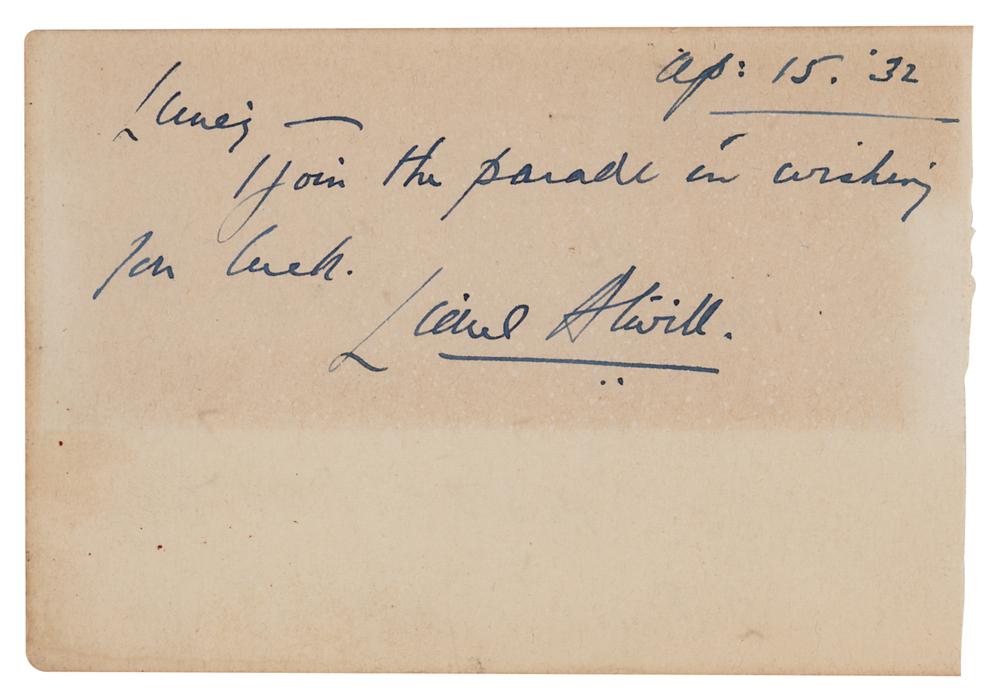 Ap: 15. '32
I join the parade in wishing
you luck.
Lionel Atwill.